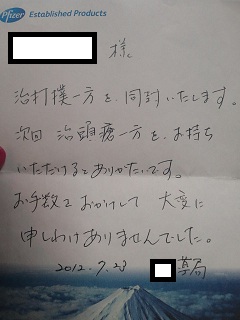 Pfizer Established Products
様
治打撲一方を、同封いたします。
次回 治頭瘡一方を、お持ち
いただけるとありがたいです。
お手数をおかけして 大変に
申しわけありませんでした。
2012.7.23
薬局